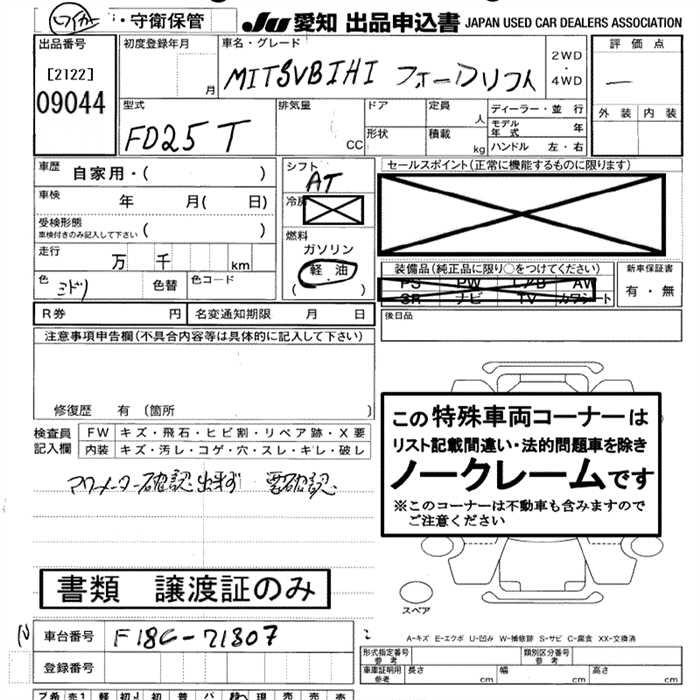 ・守衛保管
JU 愛知 出品申込書 JAPAN USED CAR DEALERS ASSOCIATION
出品番号
[2122]
09044
初度登録年月
月
車名・グレード
MITSVBIHI フォークリフト
2WD
・
4WD
評価点
ー
外装 内装
型式
FD25T
排気量
CC
ドア
形状
定員
人
積載
kg
ディーラー・並行
モデル年式 年
ハンドル 左・右
車歴 自家用・( )
車検 年 月( 日)
受検形態
車検付きのみ記入して下さい ( )
走行 万 千 km
色 ミドリ 色替 色コード
シフト
AT
冷房
燃料
ガソリン
軽油
( )
セールスポイント(正常に機能するものに限ります)
装備品(純正品に限り○をつけてください)
PS PW L/B AW
SR ナビ TV カワシート
新車保証書
有・無
R券 円 名変通知期限 月 日
後日品
注意事項申告欄(不具合内容等は具体的に記入して下さい)
修復歴 有(箇所 )
検査員記入欄
FW キズ・飛石・ヒビ割・リペア跡・X要
内装 キズ・汚レ・コゲ・穴・スレ・キレ・破レ
アワメーター確認出来ず 要確認
この特殊車両コーナーは
リスト記載間違い・法的問題車を除き
ノークレームです
※このコーナーは不動車も含みますので
ご注意ください
書類 譲渡証のみ
スペア
A-キズ E-エクボ U-凹み W-補修跡 S-サビ C-腐食 XX-交換済
車台番号 F18C-71807
登録番号
形式指定番号
参考
類別区分番号
参考
車庫証明用
参考
長さ cm 幅 cm 高さ cm